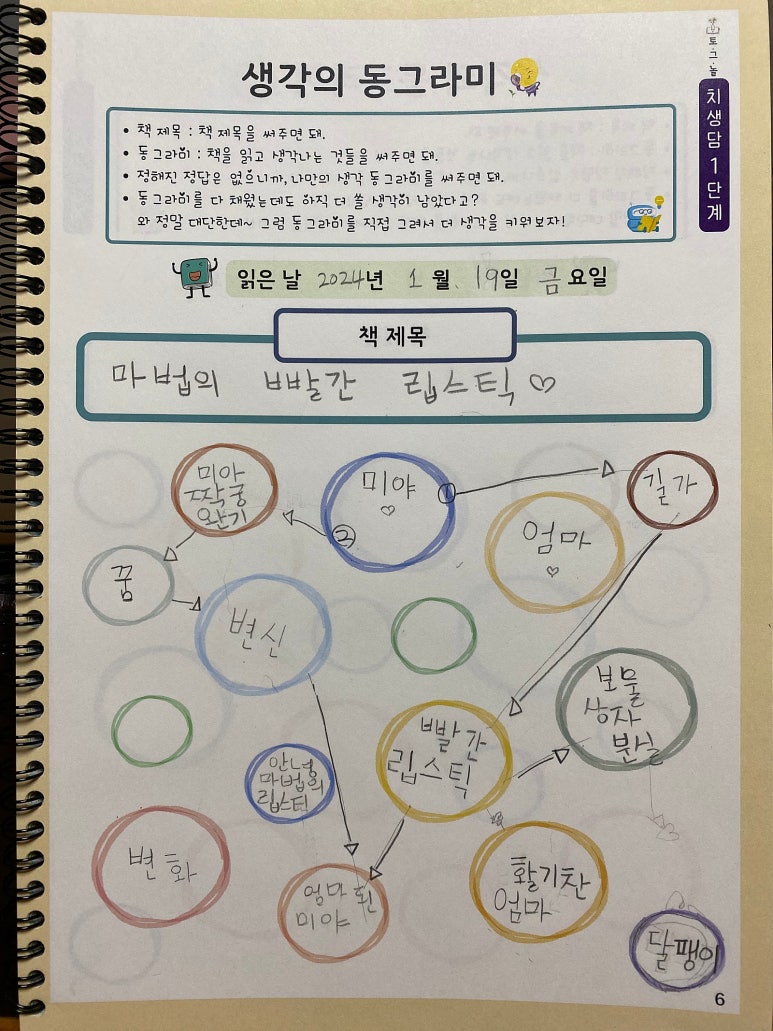 토그놀
치생담 1단계
생각의 동그라미
• 책 제목 : 책 제목을 써주면 돼.
• 동그라미 : 책을 읽고 생각나는 것들을 써주면 돼.
• 정해진 정답은 없으니까, 나만의 생각 동그라미를 써주면 돼.
• 동그라미를 다 채웠는데도 아직 더 쓸 생각이 남았다고?
와 정말 대단한데~ 그럼 동그라미를 직접 그려서 더 생각을 키워보자!
읽은 날 2024년 1월 19일 금요일
책 제목
마법의 빨간 립스틱 ♡
미야
짝궁
완기
미야
♡
①
②
길가
엄마
♡
꿈
변신
보물
상자
분실
빨간
립스틱
안녕
마법의
립스틱
변화
엄마 된
미야
활기찬
엄마
달팽이
6